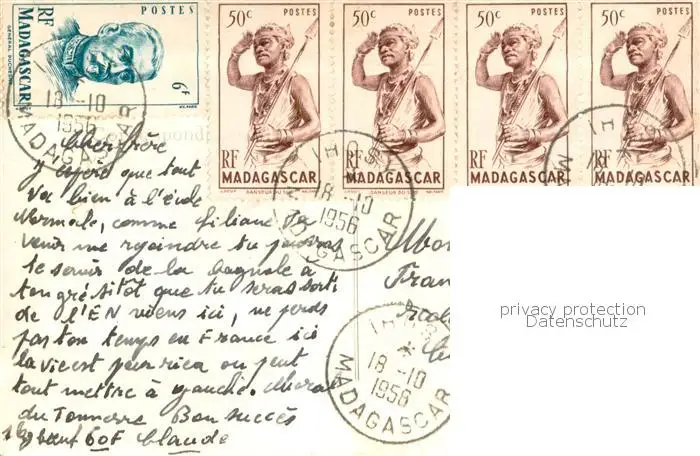 POSTES
MADAGASCAR
GENERAL DUCHESNE
6F
RF
50c POSTES
RF
MADAGASCAR
DANSEUR DU SUD
50c POSTES
RF
MADAGASCAR
DANSEUR DU SUD
50c POSTES
RF
MADAGASCAR
50c POSTES
RF
MADAGASCAR
18-10
1956
MADAGASCAR
IHOS
18-10
1956
MADAGASCAR
IHOS
IHOS
18-10
1956
MADAGASCAR
Cher frère
J'espère que tout
va bien à l'école
Normale, comme Liliane va
venir me rejoindre tu pourras
te servir de la bagnole à
ton gré sitôt que tu seras sorti
de l'EN viens ici, ne perds
pas ton temps en France ici
la vie est pour rien on peut
tout mettre à gauche. Moral
du Tonnerre Bon succès
1 kg bœuf 60F Claude
Mon
Fran
privacy protection
Datenschutz